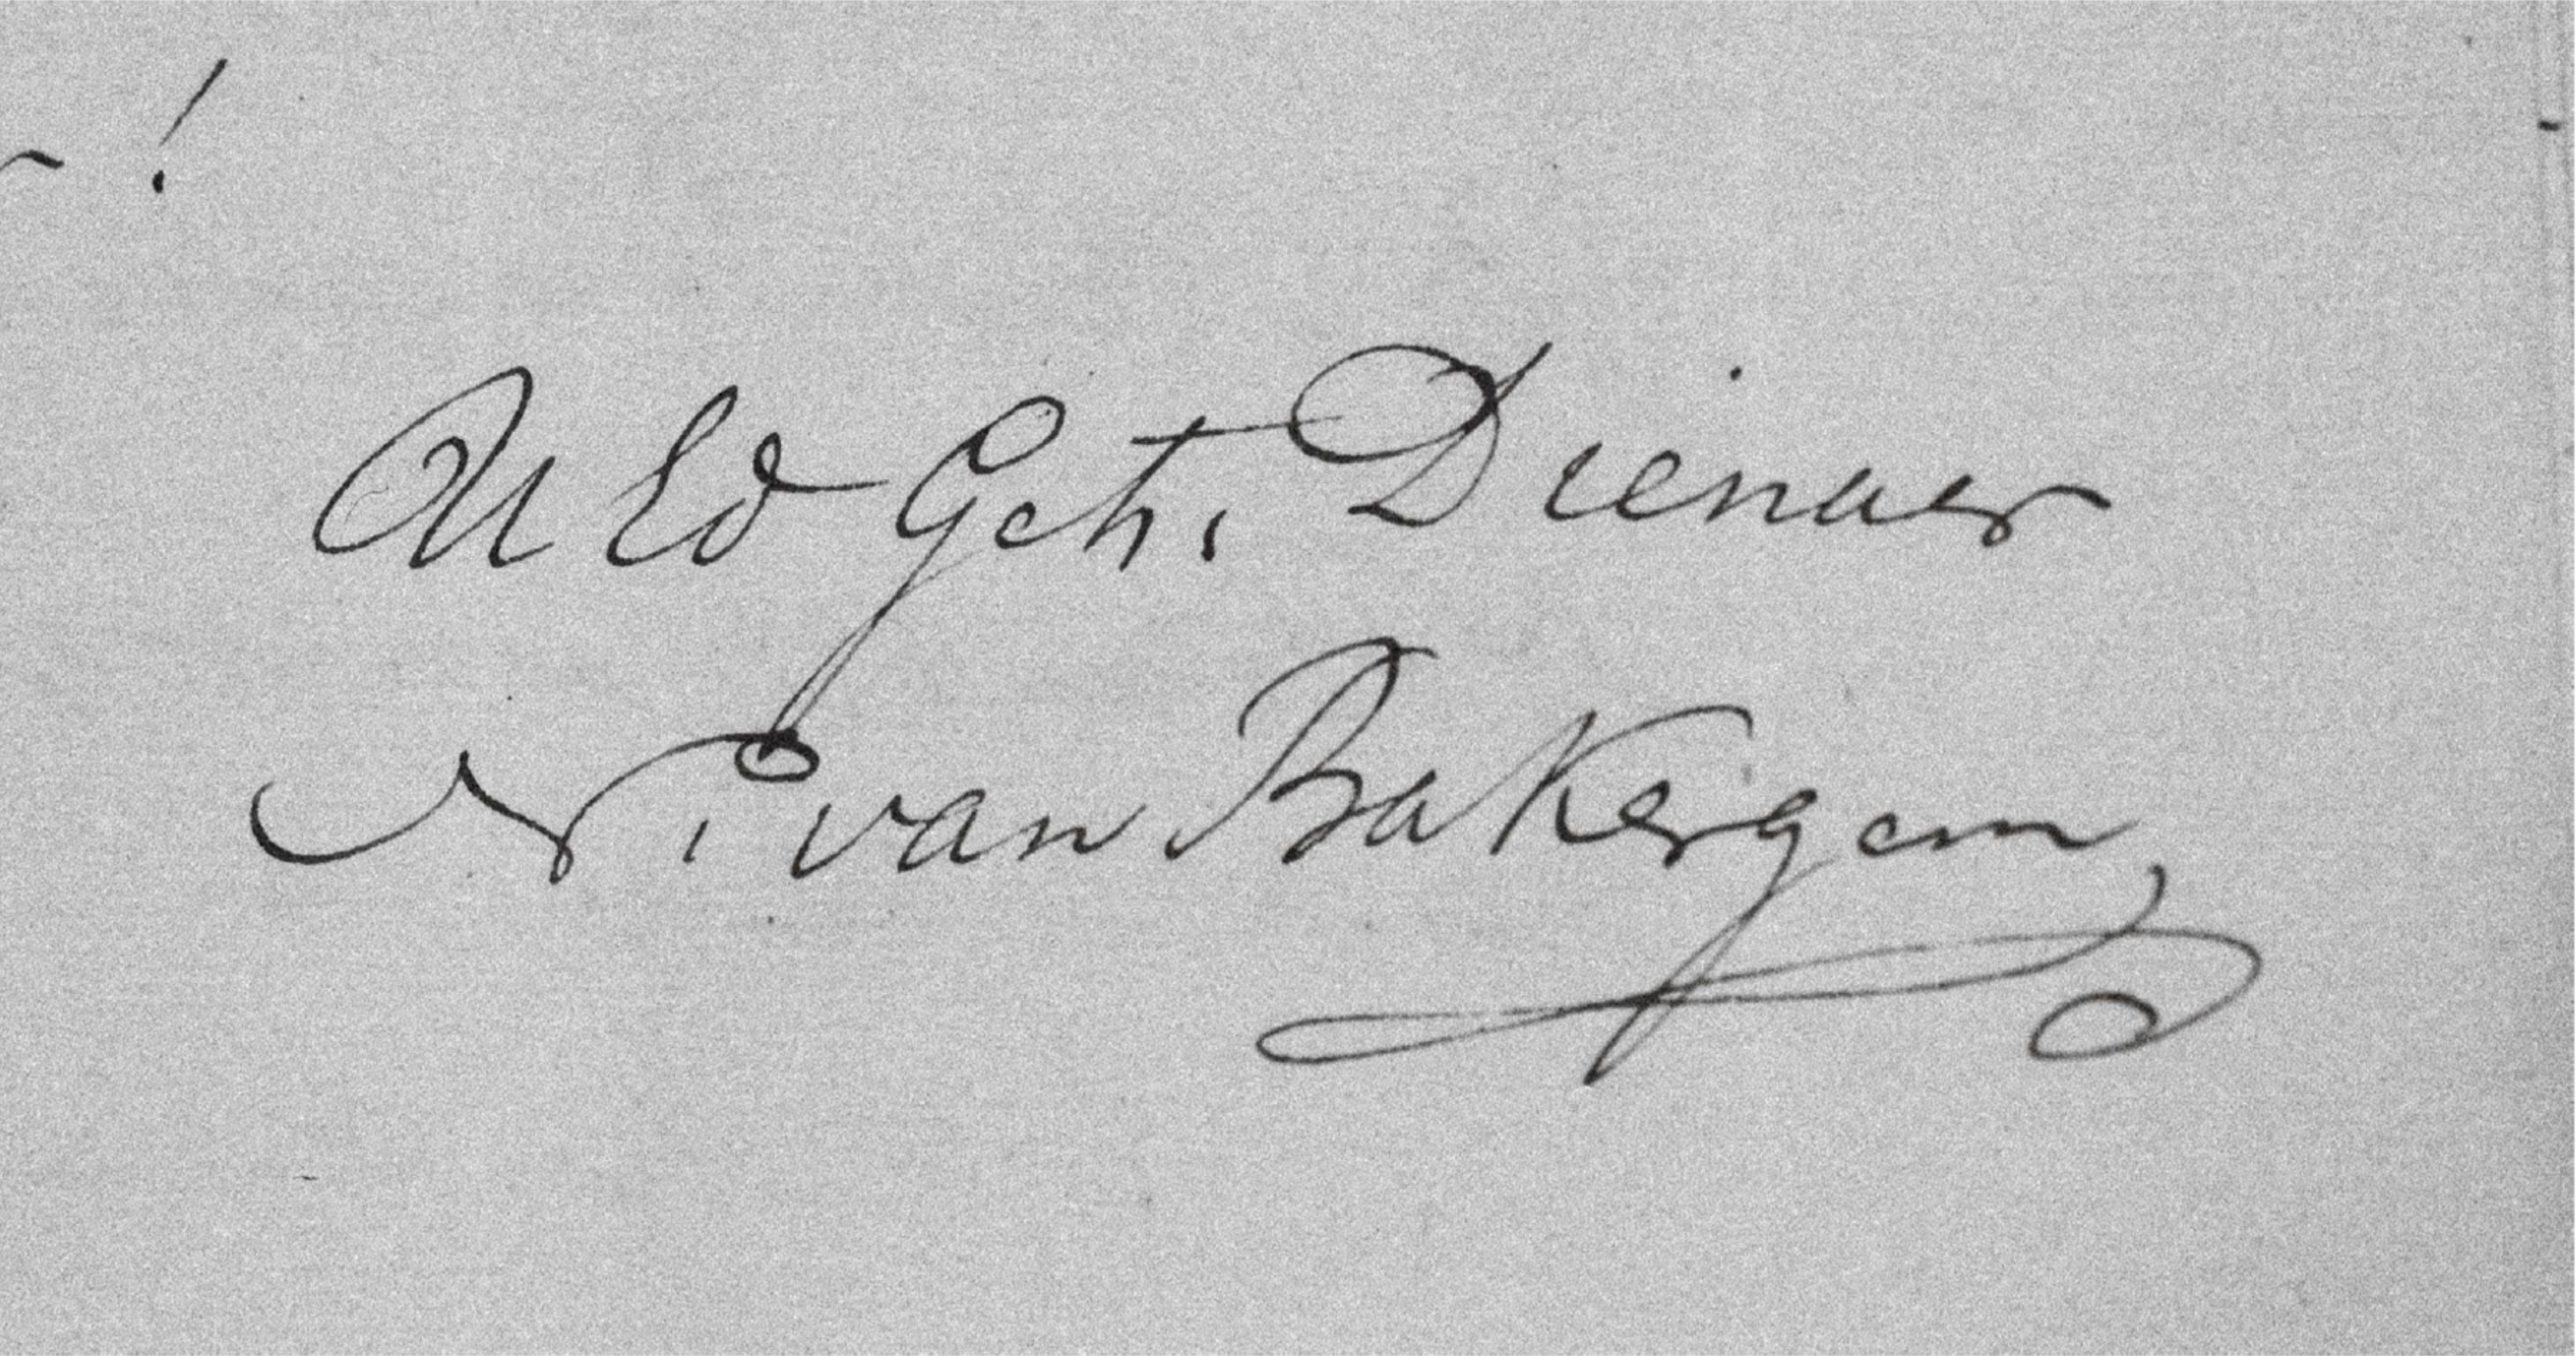 !
UEd Geh. Dienaer
N. van Bakergem